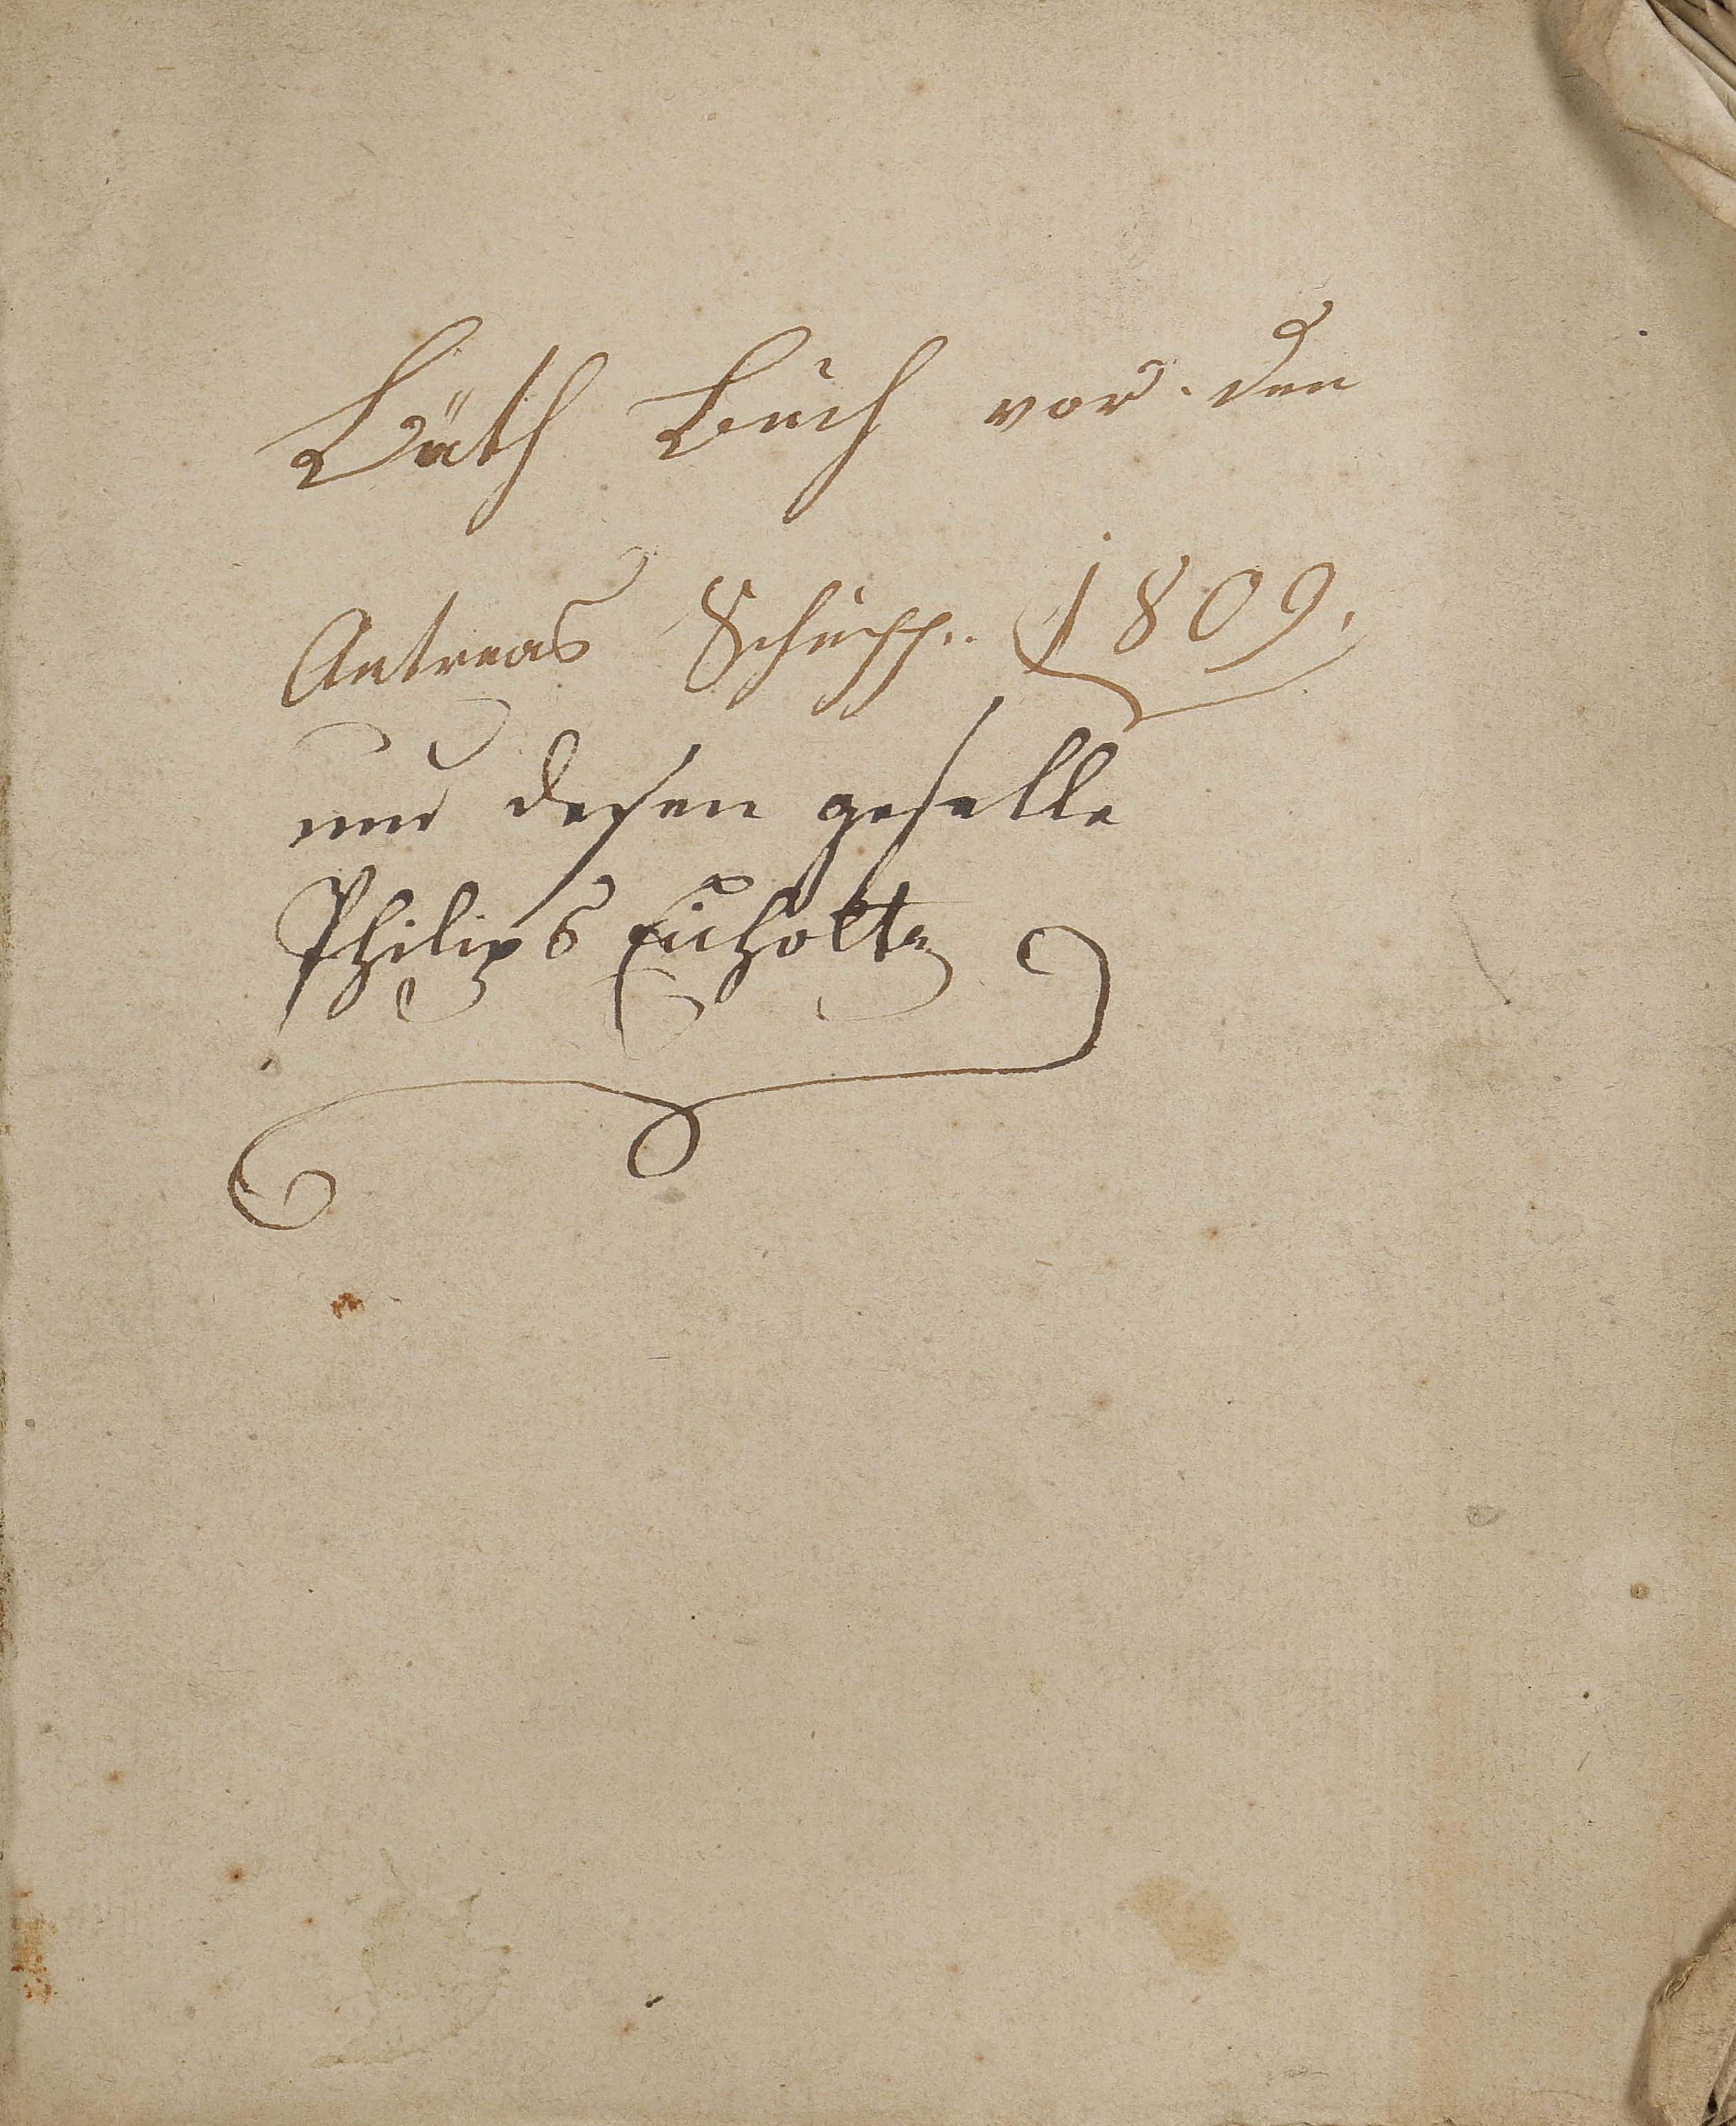 Läth Buch vor den
Antreas Schupp.. 1809.
und desen geselle
Philips Eicholtz